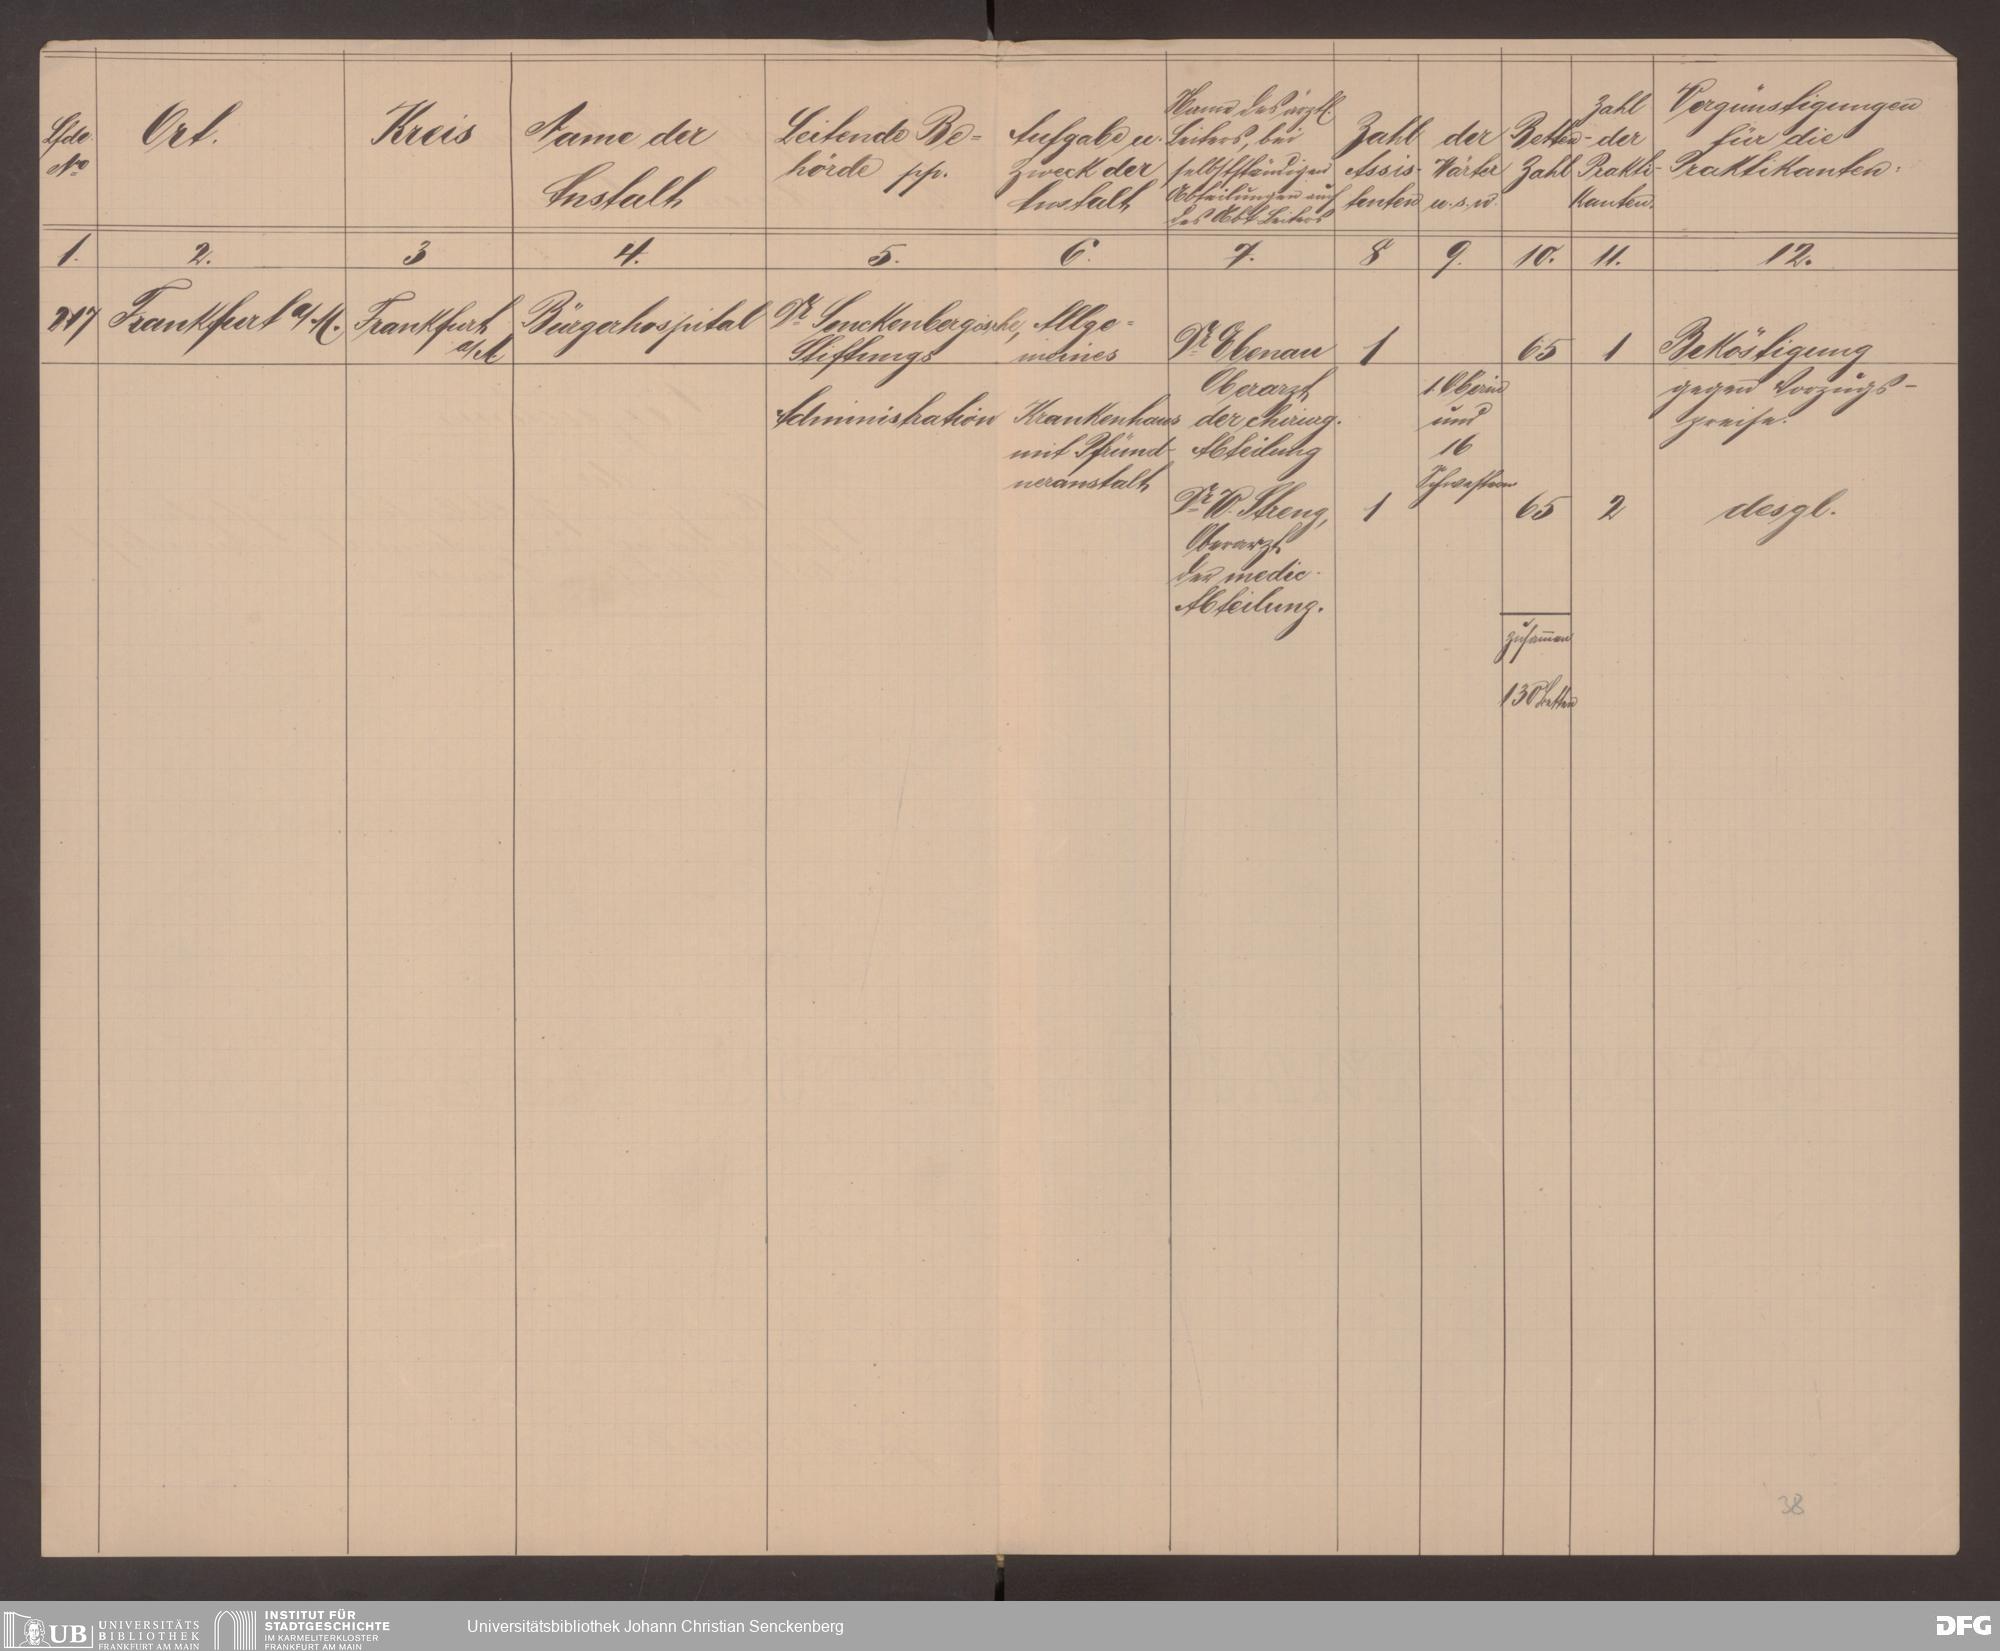 Lfde
No
Ort.
Kreis
Name der
Anstalt
Leitende Be-
hörde pp.
Aufgabe u.
Zweck der
Anstalt
Name des ärztl.
Leiters, bei
selbstständigen
Abteilungen auch
des Abt Leiters
Zahl der
Assis-
tenten
Wärter
u.s.w.
Betten-
Zahl
Zahl
der
Prakti-
kanten.
Vergünstigungen
für die
Praktikanten.
1. 2. 3 4. 5. 6. 7. 8 9. 10. 11. 12.
217
Frankfurt a/M.
Frankfurt
a/M
Bürgerhospital
Dr Senckenbergische,
Stiftungs
Administration
Allge-
meines
Krankenhaus
mit Pfründ-
neranstalt
Dr Ebenau
Oberarzt
der chirurg.
Abteilung
1
1 Oberin
und
16
Schwestern
65
1
Beköstigung
gegen Vorzugs-
preise.
Dr W. Streng,
Oberarzt
der medic.
Abteilung.
1
65
2
desgl.
zusammen
130 Betten
38
UB UNIVERSITÄTS
BIBLIOTHEK
FRANKFURT AM MAIN
INSTITUT FÜR
STADTGESCHICHTE
IM KARMELITERKLOSTER
FRANKFURT AM MAIN
Universitätsbibliothek Johann Christian Senckenberg
DFG